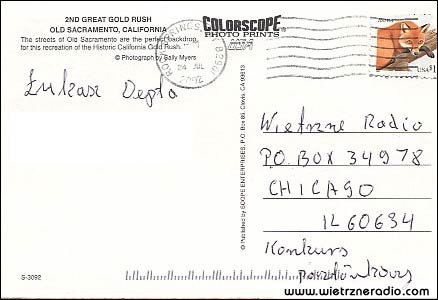 2ND GREAT GOLD RUSH
OLD SACRAMENTO, CALIFORNIA
The streets of Old Sacramento are the perfect backdrop
for this recreation of the Historic California Gold Rush.
© Photograph by Sally Myers
COLORSCOPE
PHOTO PRINTS
24 JUL
2002
USA $1
Łukasz Depta
© Published by SCOPE ENTERPRISES, P.O. Box 86, Ceres, CA
Wietrzne Radio
P.O. BOX 34978
CHICAGO
IL 60634
Konkurs
pocztówkowy
S-3092
www.wietrzneradio.com